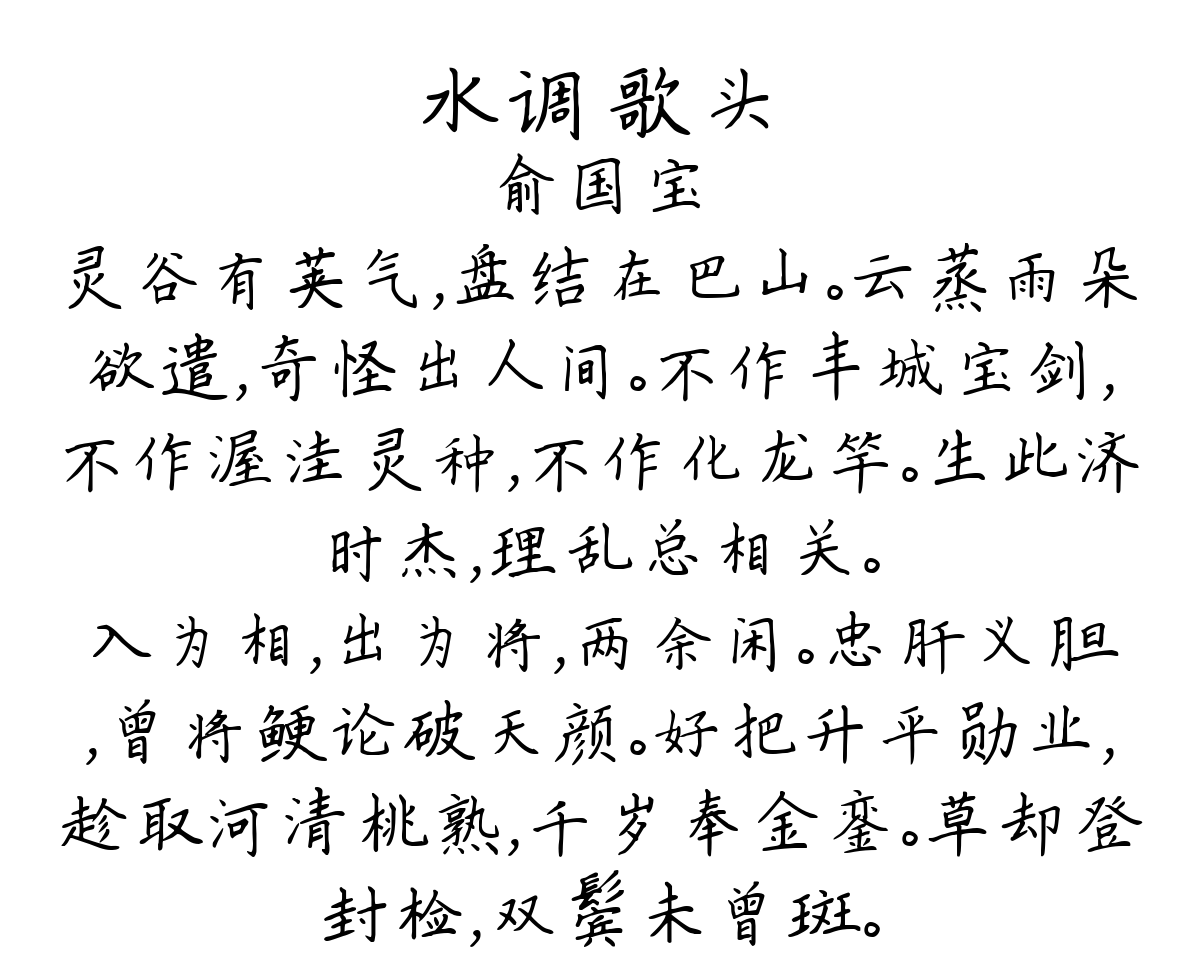 水调歌头
俞国宝
灵谷有英气,盘结在巴山。云蒸雨朵
欲遣,奇怪出人间。不作丰城宝剑,
不作渥洼灵种,不作化龙竿。生此济
时杰,理乱总相关。
入为相,出为将,两余闲。忠肝义胆
,曾将鲠论破天颜。好把升平勋业,
趁取河清桃熟,千岁奉金銮。草却登
封检,双鬓未曾斑。